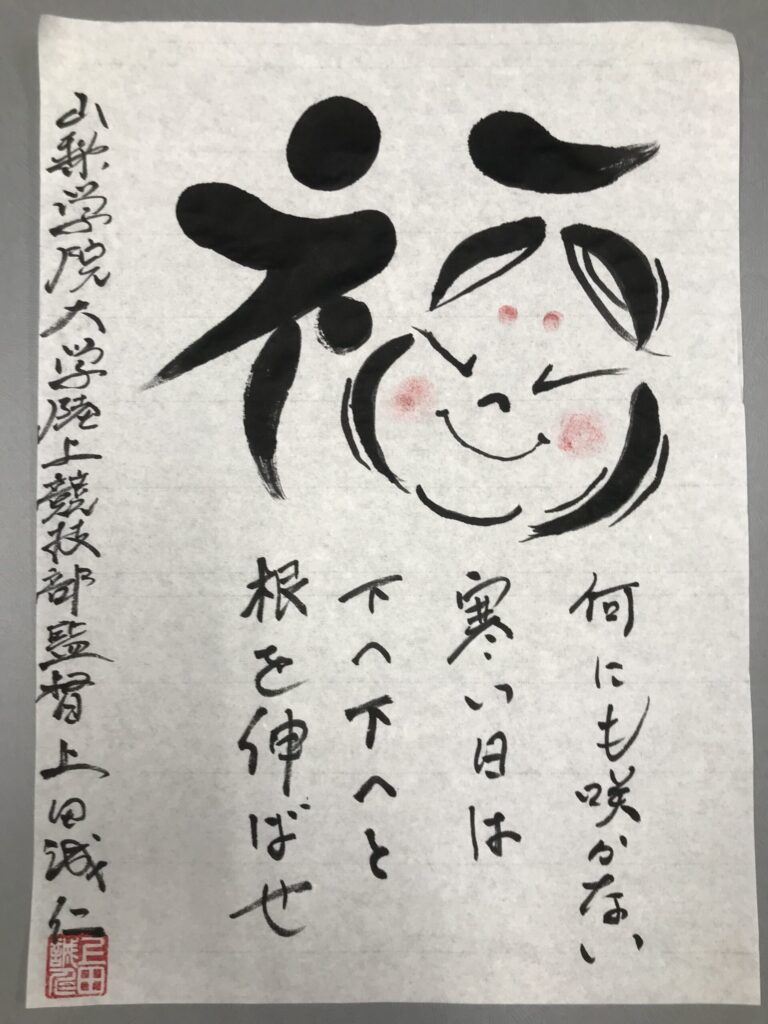 福
何にも咲かない
寒い日は
下へ下へと
根を伸ばせ
山梨学院大学陸上競技部監督上田誠仁
上田誠仁